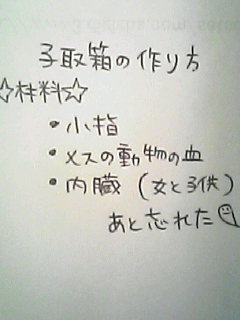 子取箱の作り方
☆材料☆
・小指
・メスの動物の血
・内臓（女と子供）
あと忘れた